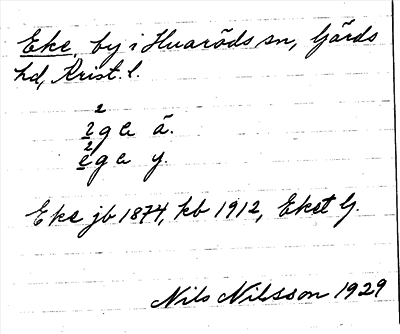 Eke, by i Huaröds sn, Gärds
hd, Krist. l.
2
ege ä.
2
ege y.
Eke jb 1874, kb 1912, Ekst G.
Nils Nilsson 1929